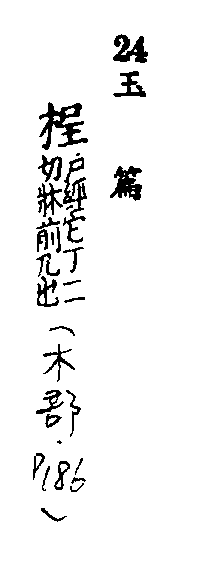 24 玉篇
桯戶經它丁二切牀前几也(木部.P186)